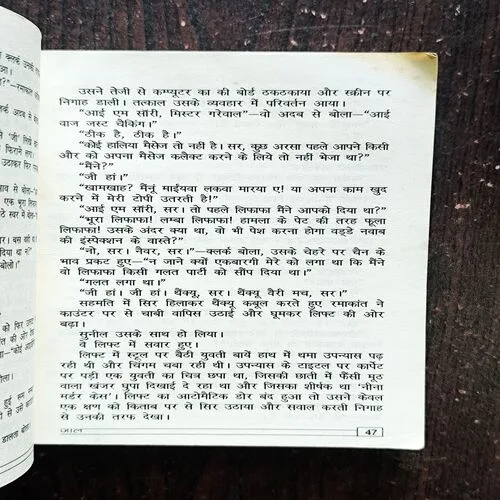 उसने तेजी से कम्प्यूटर का की बोर्ड ठकठकाया और स्क्रीन पर
निगाह डाली। तत्काल उसके व्यवहार में परिवर्तन आया।
"आई एम सॉरी, मिस्टर गरेवाल"—वो अदब से बोला—"आई
वाज जस्ट चैकिंग।"
"ठीक है, ठीक है।"
"कोई हालिया मैसेज तो नहीं है। सर, कुछ अरसा पहले आपने किसी
और को अपना मैसेज कलैक्ट करने के लिये तो नहीं भेजा था?"
"मैंने?"
"जी हां।"
"खामखाह? मैंनूं माईंयवा लकवा मारया ए! या अपना काम खुद
करने में मेरी टोपी उतरती है!"
"आई एम सॉरी, सर। तो पहले लिफाफा मैंने आपको दिया था?"
"भूरा लिफाफा! लम्बा लिफाफा! हामला के पेट की तरह फूला
लिफाफा! उसके अंदर क्या था, वो भी पेश करना होगा वड्डे नवाब
की इंस्पेक्शन के वास्ते?"
"नो, सर। नैवर, सर।"—क्लर्क बोला, उसके चेहरे पर चैन के
भाव प्रकट हुए—"न जाने क्यों एकबारगी मेरे को लगा था कि मैंने
वो लिफाफा किसी गलत पार्टी को सौंप दिया था।"
"गलत लगा था।"
"जी हां। जी हां। थैंक्यू, सर। थैंक्यू वैरी मच, सर।"
सहमति में सिर हिलाकर थैंक्यू कबूल करते हुए रमाकांत ने
काउंटर पर से चाबी वापिस उठाई और घूमकर लिफ्ट की ओर
बढ़ा।
सुनील उसके साथ हो लिया।
वे लिफ्ट में सवार हुए।
लिफ्ट में स्टूल पर बैठी युवती बायें हाथ में थमा उपन्यास पढ़
रही थी और चिंगम चबा रही थी। उपन्यास के टाइटल पर कार्पेट
पर पड़ी एक युवती का चित्र छपा था, जिसकी छाती में फैंसी मूठ
वाला खंजर घुपा दिखाई दे रहा था और जिसका शीर्षक था 'नीना
मर्डर केस'। लिफ्ट का आटोमैटिक डोर बंद हुआ तो उसने केवल
एक क्षण को किताब पर से सिर उठाया और सवाल करती निगाह
से उनकी तरफ देखा।
जाल
47